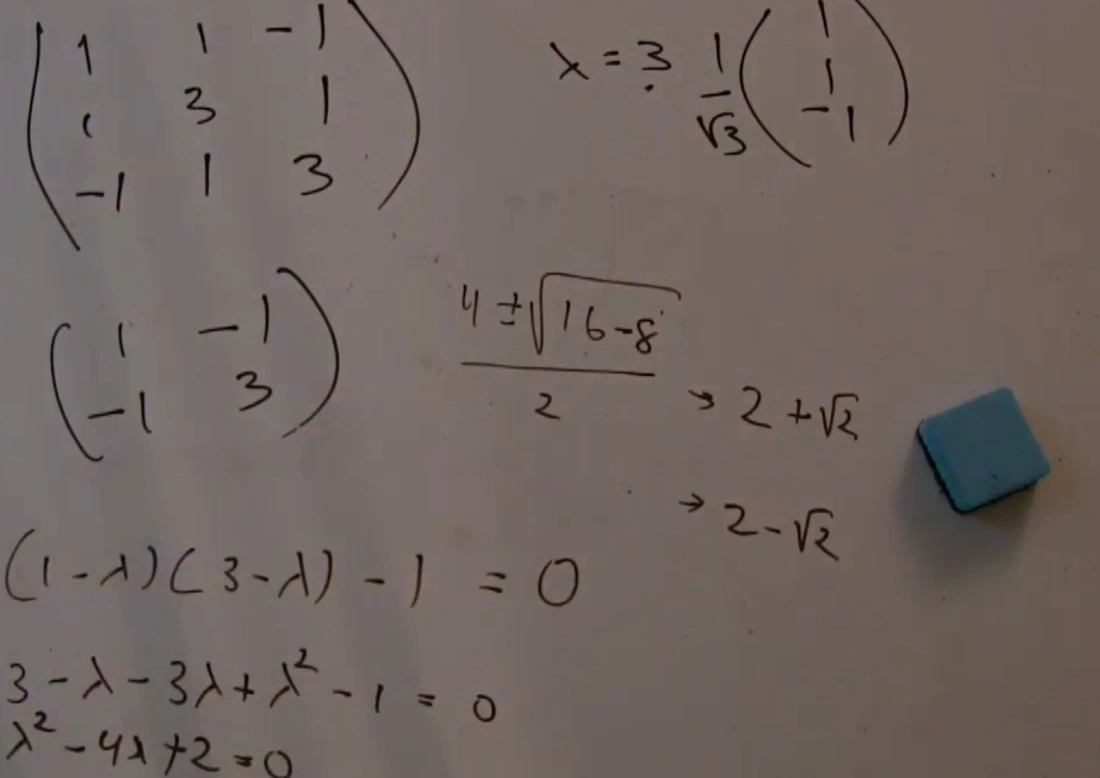 1 1 -1
1 3 1
-1 1 3
λ = 3 1/√3 (1 1 -1)
1 -1
-1 3
4 ± √16-8 / 2
→ 2 + √2
→ 2 - √2
(1 - λ)(3 - λ) - 1 = 0
3 - λ - 3λ + λ² - 1 = 0
λ² - 4λ + 2 = 0